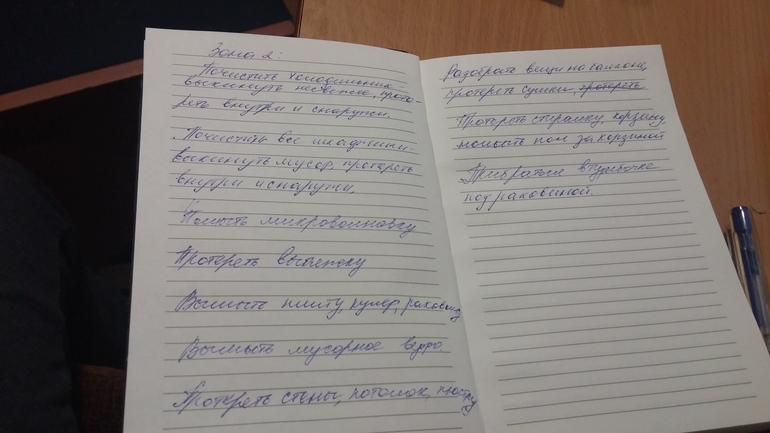 Зона 2:
Почистить холодильник -
выкинуть несвежее, проте-
реть внутри и снаружи.
Почистить все шкафчики -
выкинуть мусор, протереть
внутри и снаружи.
Помыть микроволновку
Протереть вытяжку
Вымыть плиту, кулер, раковину
Вымыть мусорное ведро.
Протереть стены, потолок, люстру
Разобрать вещи на балконе,
протереть сушки, протереть
Протереть стиралку, корзину,
помыть пол за корзиной
Прибраться в тумбочке
под раковиной.